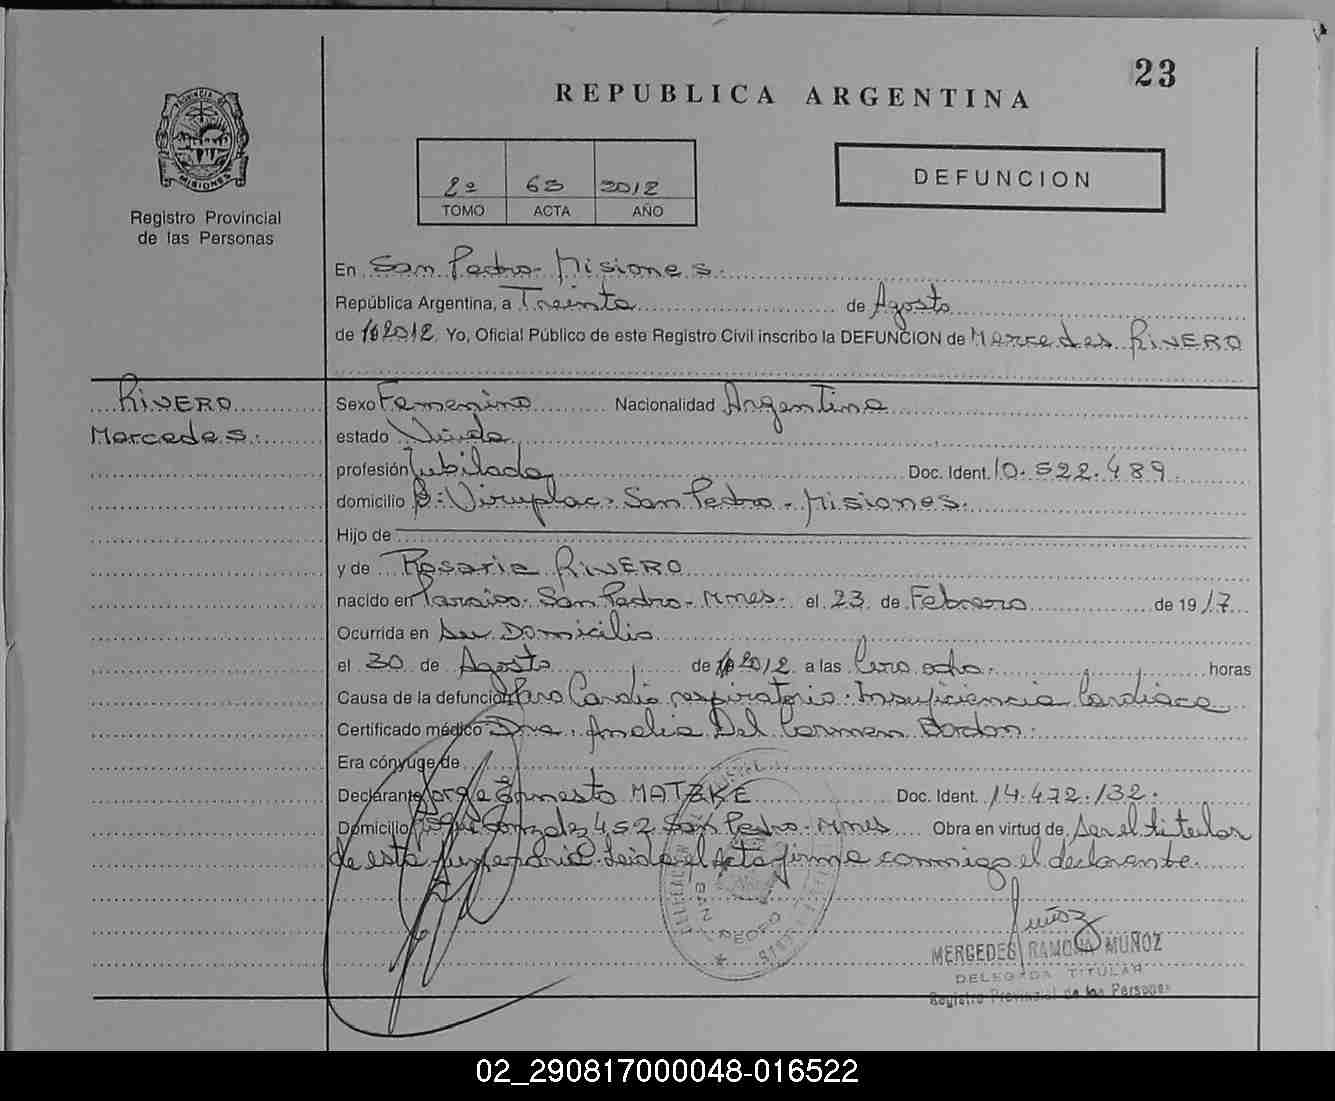 23
REPUBLICA ARGENTINA
PROVINCIA DE
MISIONES
Registro Provincial
de las Personas
2º 63 2012
TOMO ACTA AÑO
DEFUNCION
En San Pedro - Misiones.
República Argentina, a Treinta de Agosto
de 2012. Yo, Oficial Público de este Registro Civil inscribo la DEFUNCION de Mercedes RIVERO
RIVERO
Mercedes.
Sexo Femenino Nacionalidad Argentina
estado Viuda
profesión Jubilada Doc. Ident. 10.522.489.
domicilio Bº: Viruplac - San Pedro - Misiones.
Hijo de
y de Rosaria RIVERO
nacido en Paraiso - San Pedro - Mnes. el 23 de Febrero de 1917
Ocurrida en su Domicilio
el 30 de Agosto de 2012 a las Cero ocho. horas
Causa de la defunción Paro Cardio respiratorio - Insuficiencia Cardiaca
Certificado médico Dra. Analia Del Carmen Bordon.
Era cónyuge de
Declarante Jorge Ernesto MATZKE Doc. Ident. 14.472.132.
Domicilio Gonzalz 452 San Pedro - Mnes Obra en virtud de ser el titular
de esta funeraria. Leida el Acta firma conmigo el declarante.
SAN PEDRO
Muñoz
MERCEDES RAMONA MUÑOZ
DELEGADA TITULAR
Registro Provincial de las Personas
02_290817000048-016522